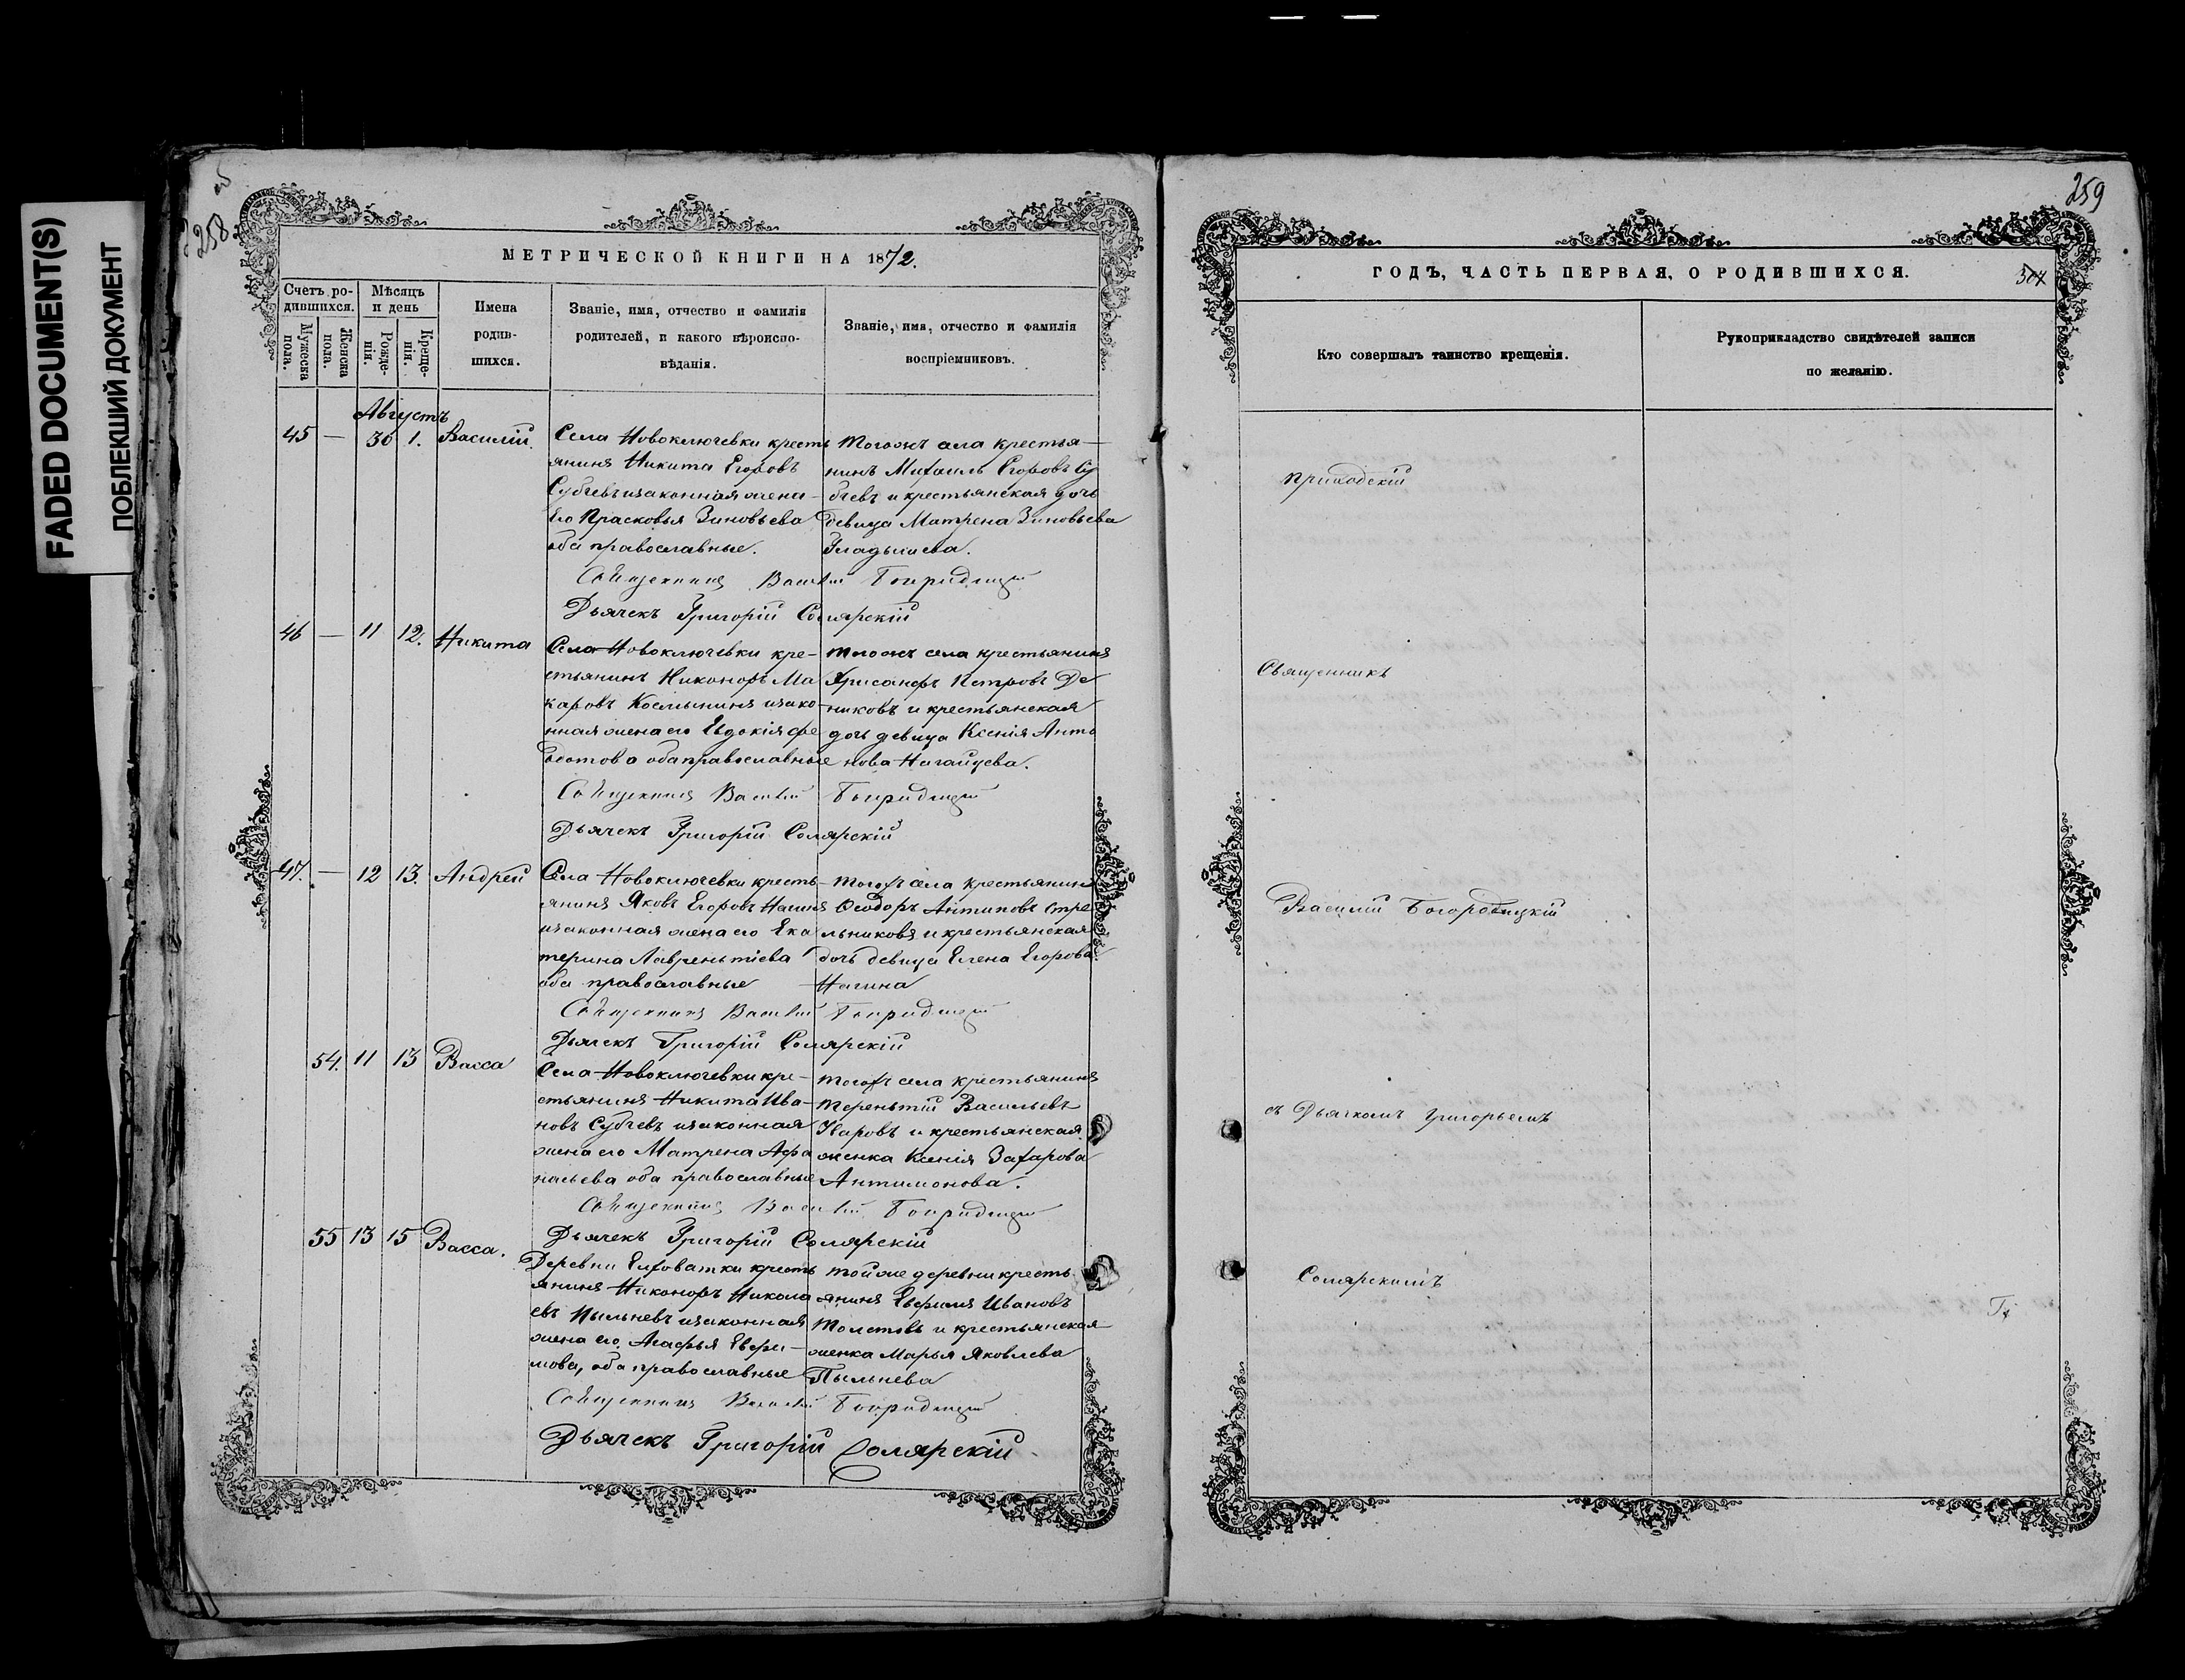 FADED DOCUMENT(S)
ПОБЛЕКШИЙ ДОКУМЕНТ
258
259
МЕТРИЧЕСКОЙ КНИГИ НА 1872.
Счетъ ро-
дившихся.
Мужеска
пола.
Женска
пола.
Мѣсяцъ
и день
Рожде-
нія.
Креще-
нія.
Имена
родив-
шихся.
Званіе, имя, отчество и фамилія
родителей, и какого вѣроиспо-
вѣданія.
Званіе, имя, отчество и фамилія
воспріемниковъ.
Августъ
45 — 30 1. Василій.
Села Новоключевки кресть
янинъ Никита Егоровъ
Субчевъ и законная жена
его Прасковья Зиновьева
оба православные.
Тогожъ села крестья—
нинъ Михаилъ Егоровъ Су
бчевъ и крестьянская дочь
девица Матрена Зиновьева
Гладышева.
Священникъ Василій
Дьячекъ Григорій Солярскій
46 — 11 12. Никита
Села Новоключевки кре-
стьянинъ Никоноръ Ма
каровъ и зако-
нная жена его Евдокія Фе
дотова оба православные
тогожъ села крестьянинъ
Хрисанфъ Петровъ Де
никовъ и крестьянская
дочь девица Ксенія Анто
нова
Священникъ Василій
Дьячекъ Григорій Солярскій
47. — 12 13. Андрей
Села Новоключевки кресть-
янинъ Яковъ Егоровъ
и законная жена его Ека
терина Лаврентіева
оба православные
тогожъ села крестьянинъ
Ѳеодоръ Антиповъ Стре
льниковъ и крестьянская
дочь девица Елена Егорова
Священникъ Василій
Дьячекъ Григорій Солярскій
54. 11 13 Васса
Села Новоключевки кре-
стьянинъ Никита Ива-
новъ Субчевъ и законная
жена его Матрена Афа
насьева оба православные
тогожъ села крестьянинъ
Терентій Васильевъ
Уваровъ и крестьянская
женка Ксенія Захарова
Антимонова.
Священникъ Василій
Дьячекъ Григорій Солярскій
55 13 15 Васса.
Деревни Елховатки кресть
янинъ Никоноръ Никола
евъ Пыльневъ и законная
жена его Агафья Ефи-
мова, оба православные
той же деревни кресть-
янинъ Ефимъ Ивановъ
Толстовъ и крестьянская
женка Марья Яковлева
Пыльнева
Священникъ Василій
Дьячекъ Григорій Солярскій
ГОДЪ, ЧАСТЬ ПЕРВАЯ, О РОДИВШИХСЯ.
Кто совершалъ таинство крещенія.
Рукоприкладство свидѣтелей записи
по желанію.
приходскій
Священникъ
Василій Богородицкій
съ Дьячкомъ Григорьемъ
Солярскимъ